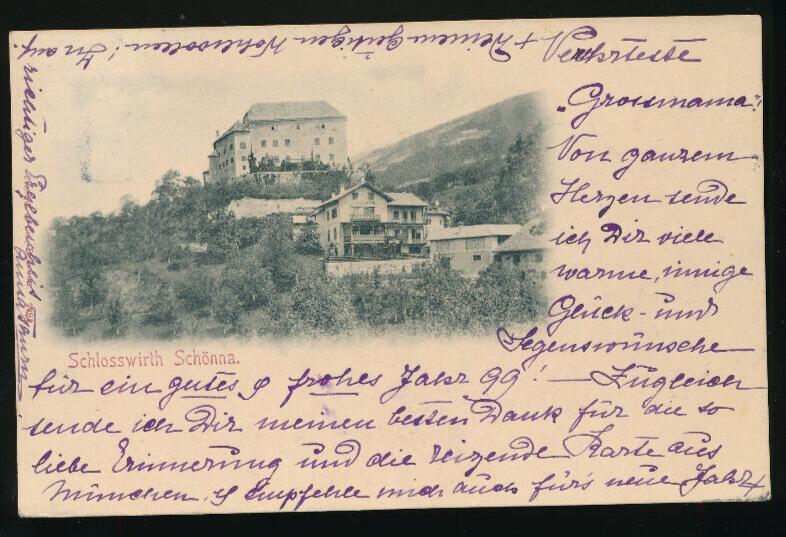 Verehrteste
„Grossmama"!
Von ganzem
Herzen sende
ich Dir viele
warme, innige
Glück- und
Segenswünsche
für ein gutes & frohes Jahr 99! — Zugleich
sende ich Dir meinen besten Dank für die so
liebe Erinnerung und die reizende Karte aus
München & empfehle mich auch für's neue Jahr
+ Deinem gütigen Wohlwollen! In auf-
richtiger Ergebenheit
Anna
Schlosswirth Schönna.